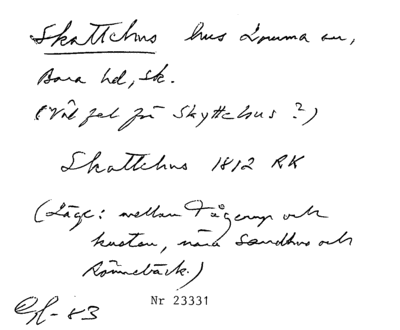 Skattehus hus Lomma sn,
Bara hd, Sk.
(Väl fel för Skyttehus?)
Skattehus 1812 RK
(Läge: mellan Tågerup och
kusten, nära Sandhus och
Rönnebäck.)
-83
Nr 23331